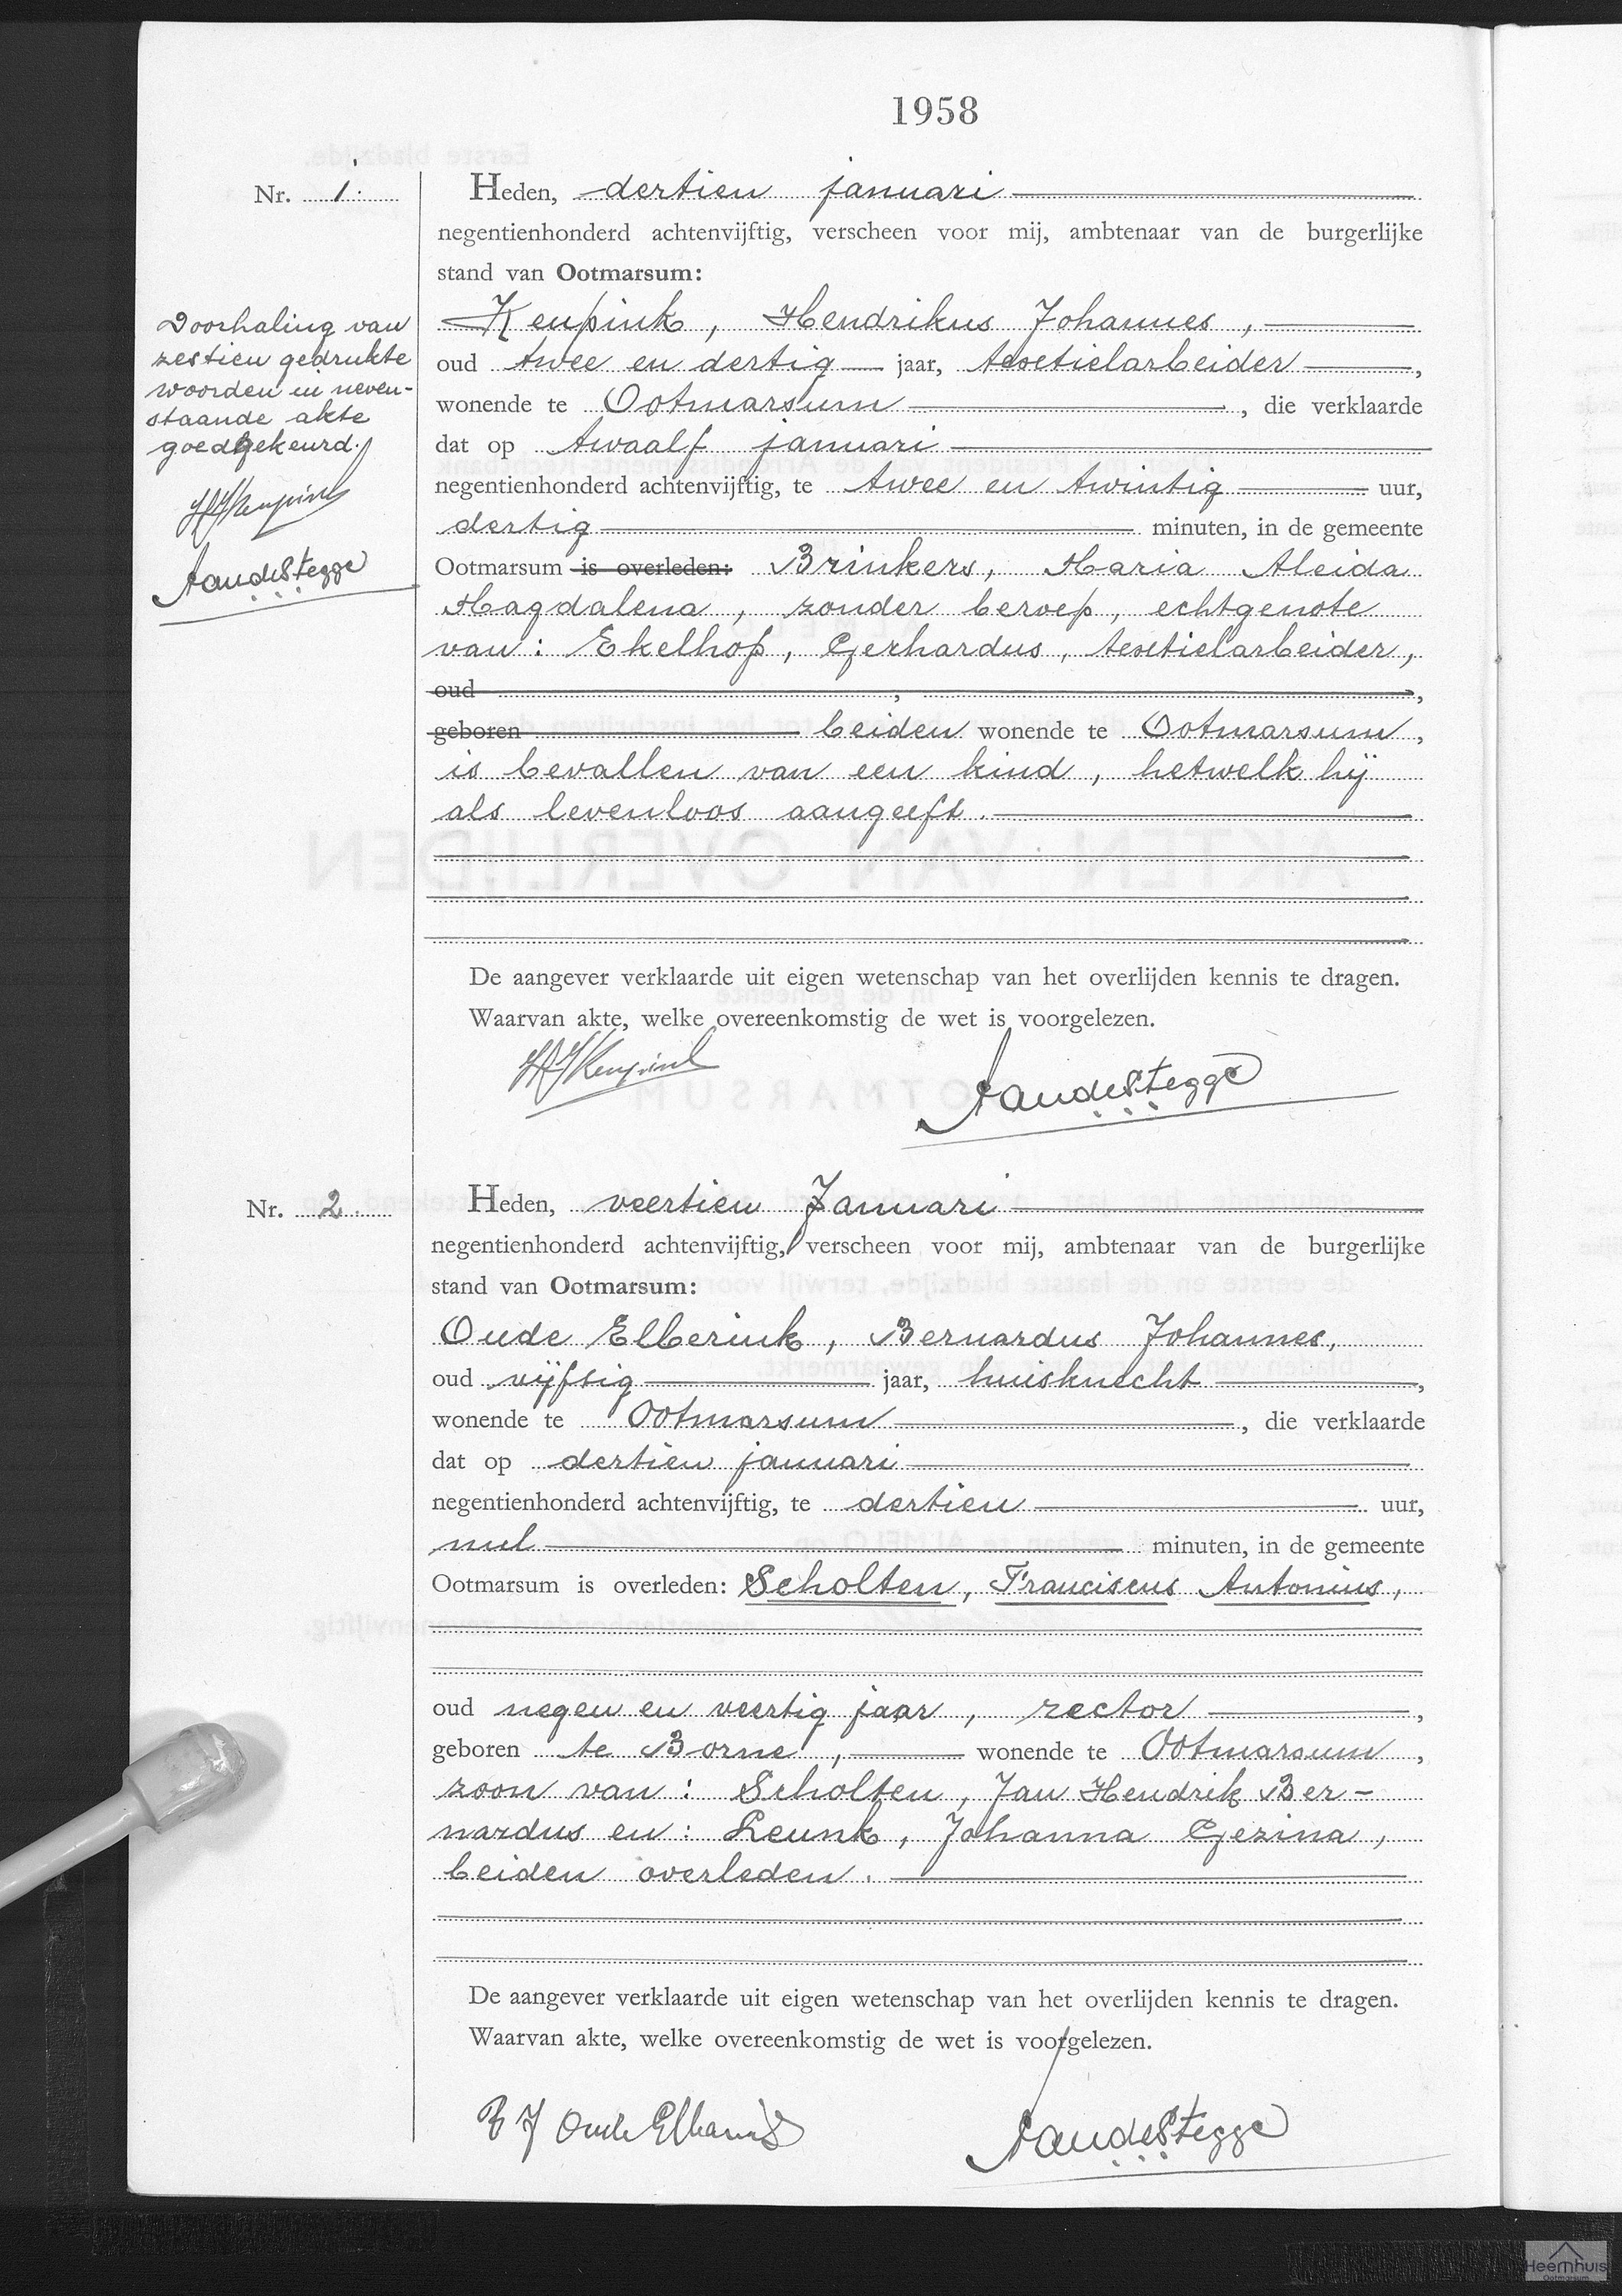 1958
Nr. 1.
Heden, dertien januari
negentienhonderd achtenvijftig, verscheen voor mij, ambtenaar van de burgerlijke
stand van Ootmarsum:
Keupink, Hendrikus Johannes,
oud twee en dertig jaar, textielarbeider,
wonende te Ootmarsum, die verklaarde
dat op twaalf januari
negentienhonderd achtenvijftig, te twee en twintig uur,
dertig minuten, in de gemeente
Ootmarsum is overleden: Brinkers, Maria Aleida
Magdalena, zonder beroep, echtgenote
van: Ekelhof, Gerhardus, textielarbeider,
oud , ,
geboren beiden wonende te Ootmarsum,
is bevallen van een kind, hetwelk hij
als levenloos aangeeft.
De aangever verklaarde uit eigen wetenschap van het overlijden kennis te dragen.
Waarvan akte, welke overeenkomstig de wet is voorgelezen.
HJKeupink
AandeStegge
Doorhaling van
zestien gedrukte
woorden in neven-
staande akte
goedgekeurd.
HJKeupink
AandeStegge
Nr. 2.
Heden, veertien Januari
negentienhonderd achtenvijftig, verscheen voor mij, ambtenaar van de burgerlijke
stand van Ootmarsum:
Oude Elberink, Bernardus Johannes,
oud vijftig jaar, huisknecht,
wonende te Ootmarsum, die verklaarde
dat op dertien januari
negentienhonderd achtenvijftig, te dertien uur,
nul minuten, in de gemeente
Ootmarsum is overleden: Scholten, Franciscus Antonius,
oud negen en veertig jaar, rector,
geboren te Borne, wonende te Ootmarsum,
zoon van: Scholten, Jan Hendrik Ber-
nardus en: Leunk, Johanna Gezina,
beiden overleden.
De aangever verklaarde uit eigen wetenschap van het overlijden kennis te dragen.
Waarvan akte, welke overeenkomstig de wet is voorgelezen.
B J Oude Elberink
AandeStegge
Heemhuis
Ootmarsum